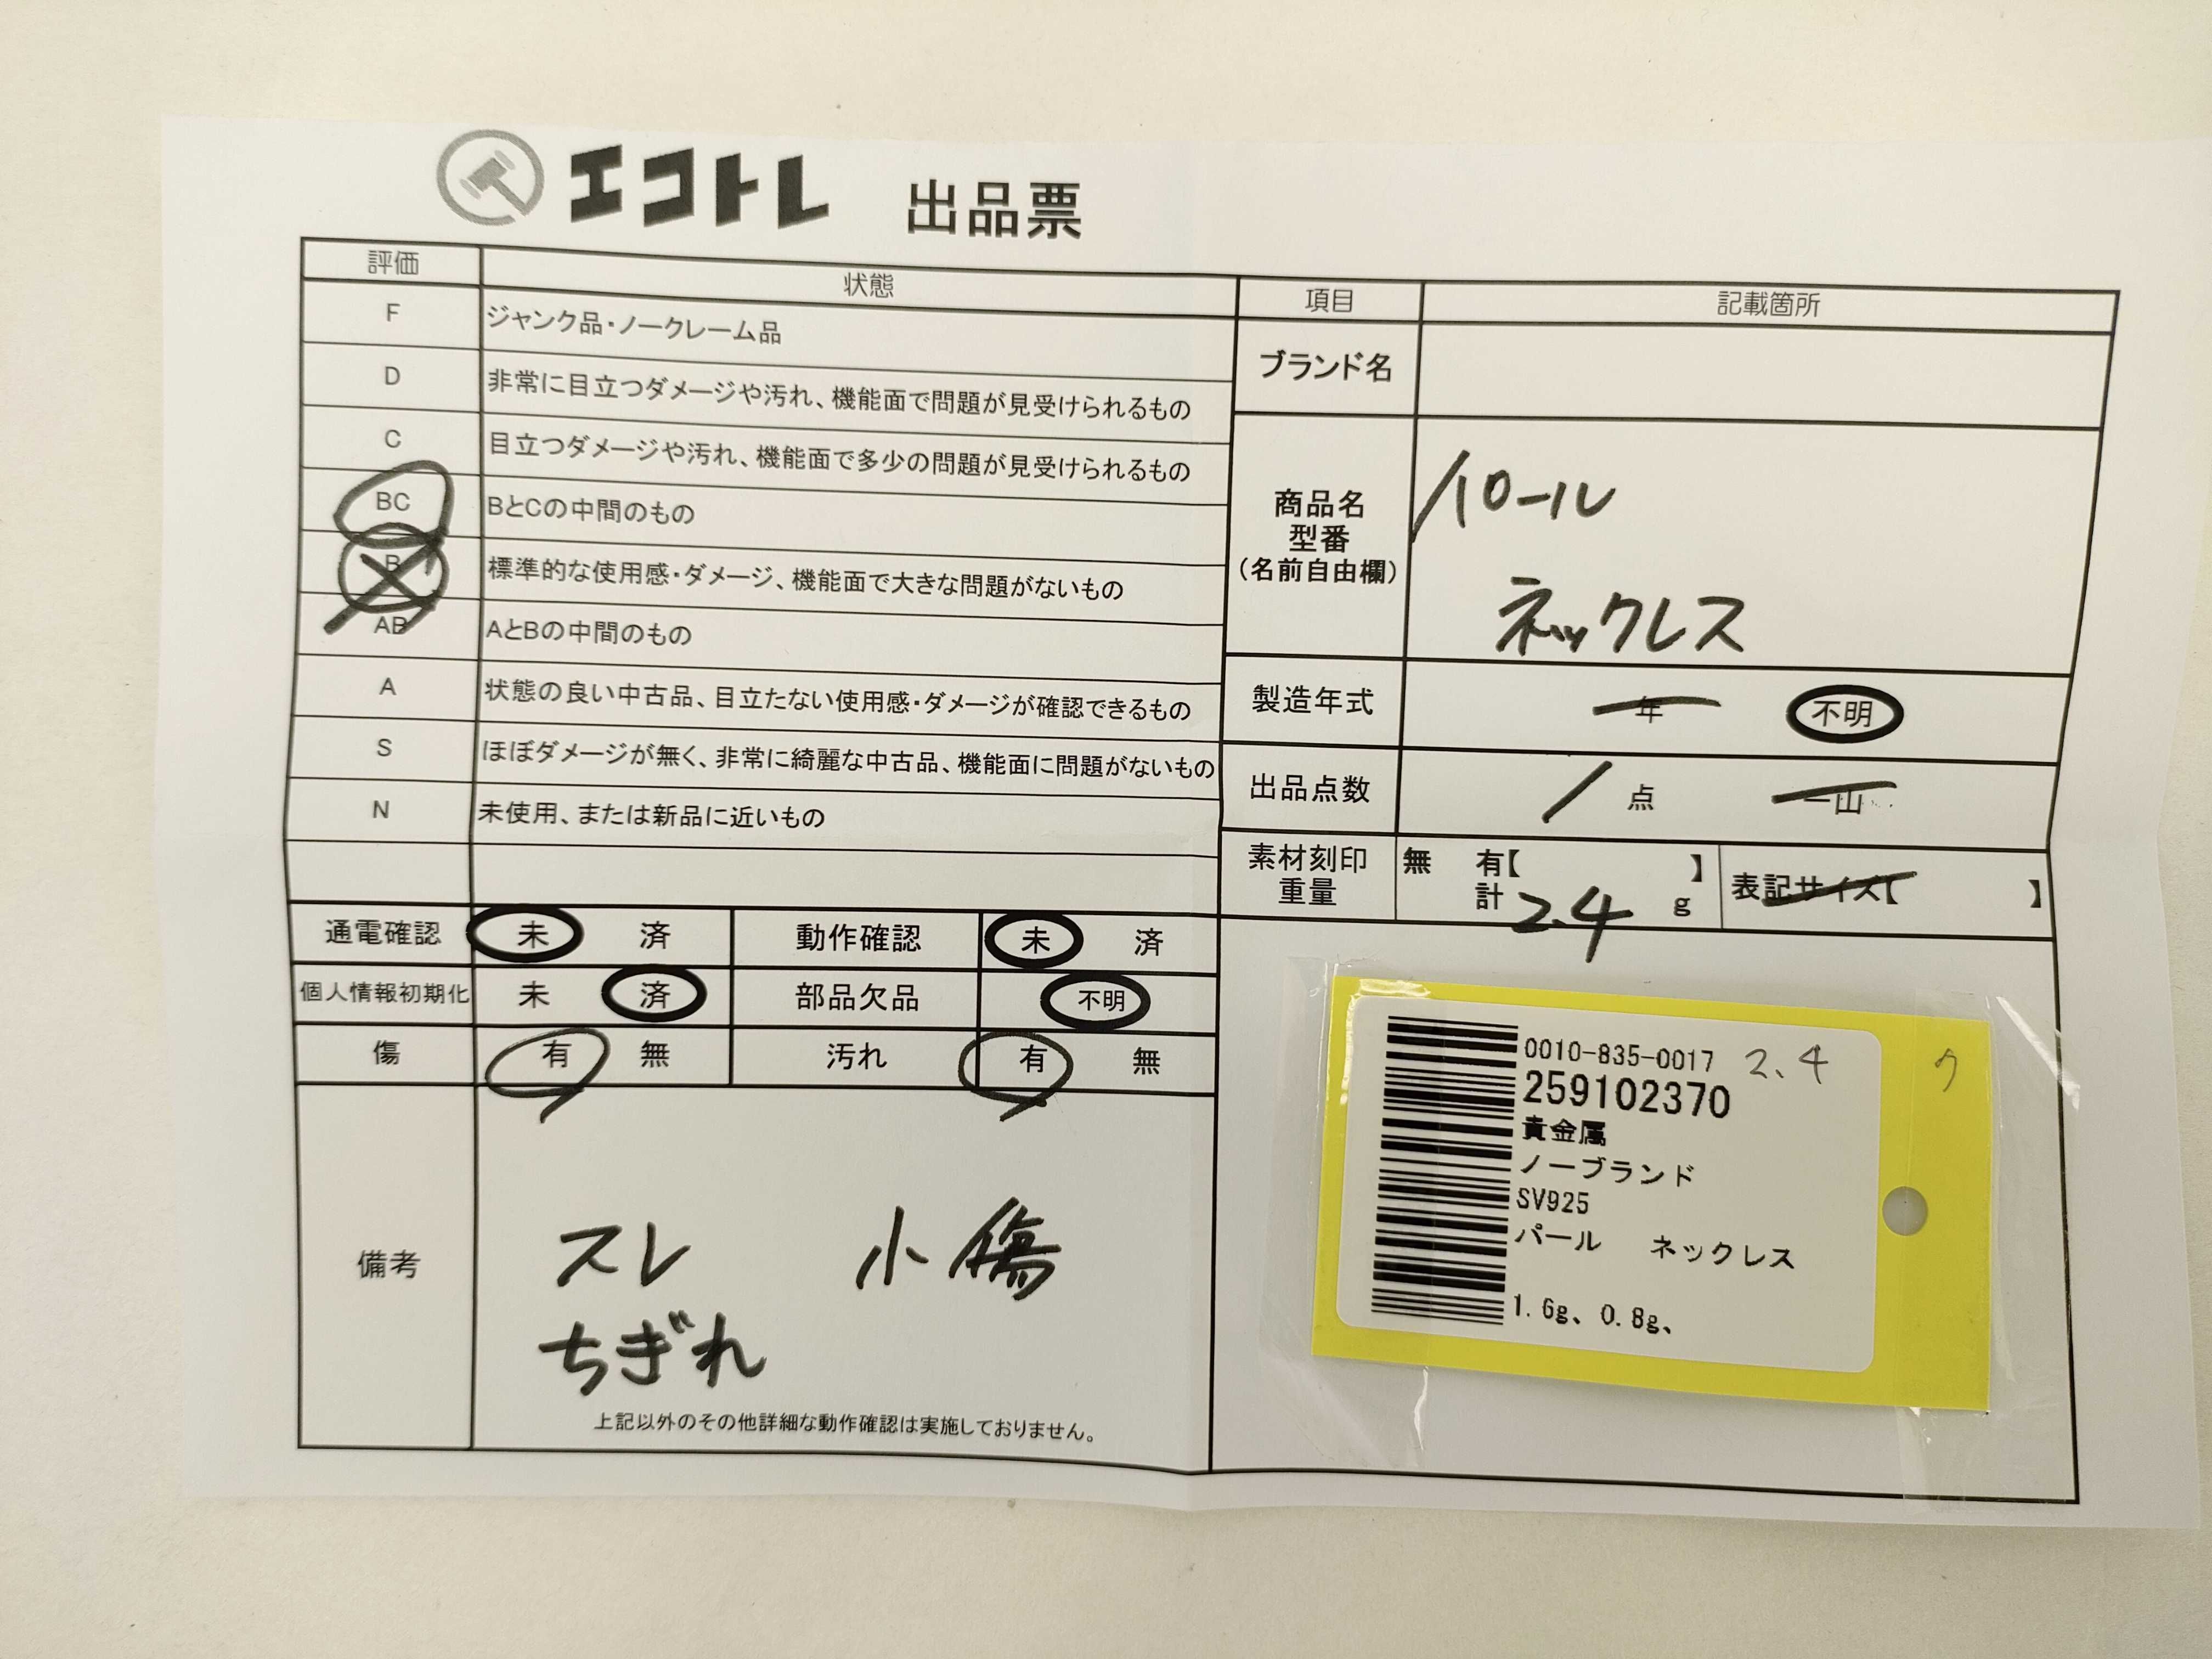 エコトレ 出品票
評価 状態
F ジャンク品・ノークレーム品
D 非常に目立つダメージや汚れ、機能面で問題が見受けられるもの
C 目立つダメージや汚れ、機能面で多少の問題が見受けられるもの
BC BとCの中間のもの
B 標準的な使用感・ダメージ、機能面で大きな問題がないもの
AB AとBの中間のもの
A 状態の良い中古品、目立たない使用感・ダメージが確認できるもの
S ほぼダメージが無く、非常に綺麗な中古品、機能面に問題がないもの
N 未使用、または新品に近いもの
通電確認 未 済 動作確認 未 済
個人情報初期化 未 済 部品欠品 不明
傷 有 無 汚れ 有 無
備考
スレ 小傷
ちぎれ
上記以外のその他詳細な動作確認は実施しておりません。
項目 記載箇所
ブランド名
商品名
型番
(名前自由欄)
パール
ネックレス
製造年式 年 不明
出品点数 1 点 一山
素材刻印 無 有【 】
重量 計 2.4 g
表記サイズ【 】
0010-835-0017 2.4
259102370
貴金属
ノーブランド
SV925
パール ネックレス
1.6g、0.8g、